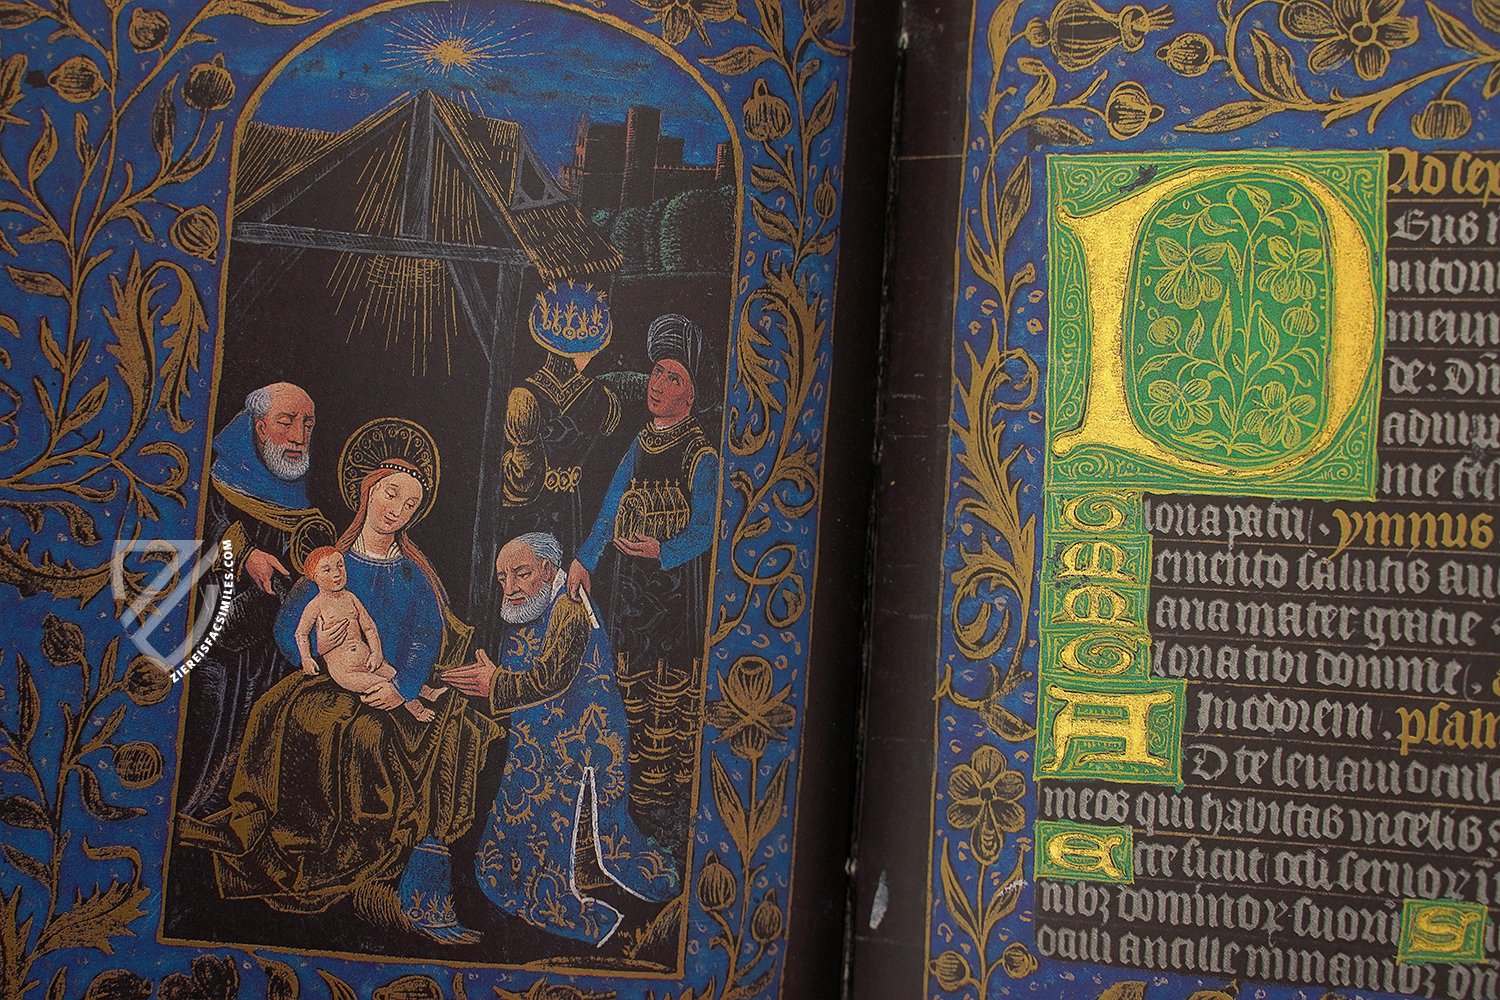 ZIEREISFACSIMILES.COM
Ad sex
Deus
meum
de: Dn̄e
me
Gloria patri. ymnus
Memento salutis au
Maria mater gratie
Gloria tibi domine.
In odorem. psalm
AD te leuaui oculo
meos qui habitas in celis
Ecce sicut oculi seruoꝝ
nibꝫ dominoꝝ suoꝝ S
oculi ancille in manibꝫ dn̄